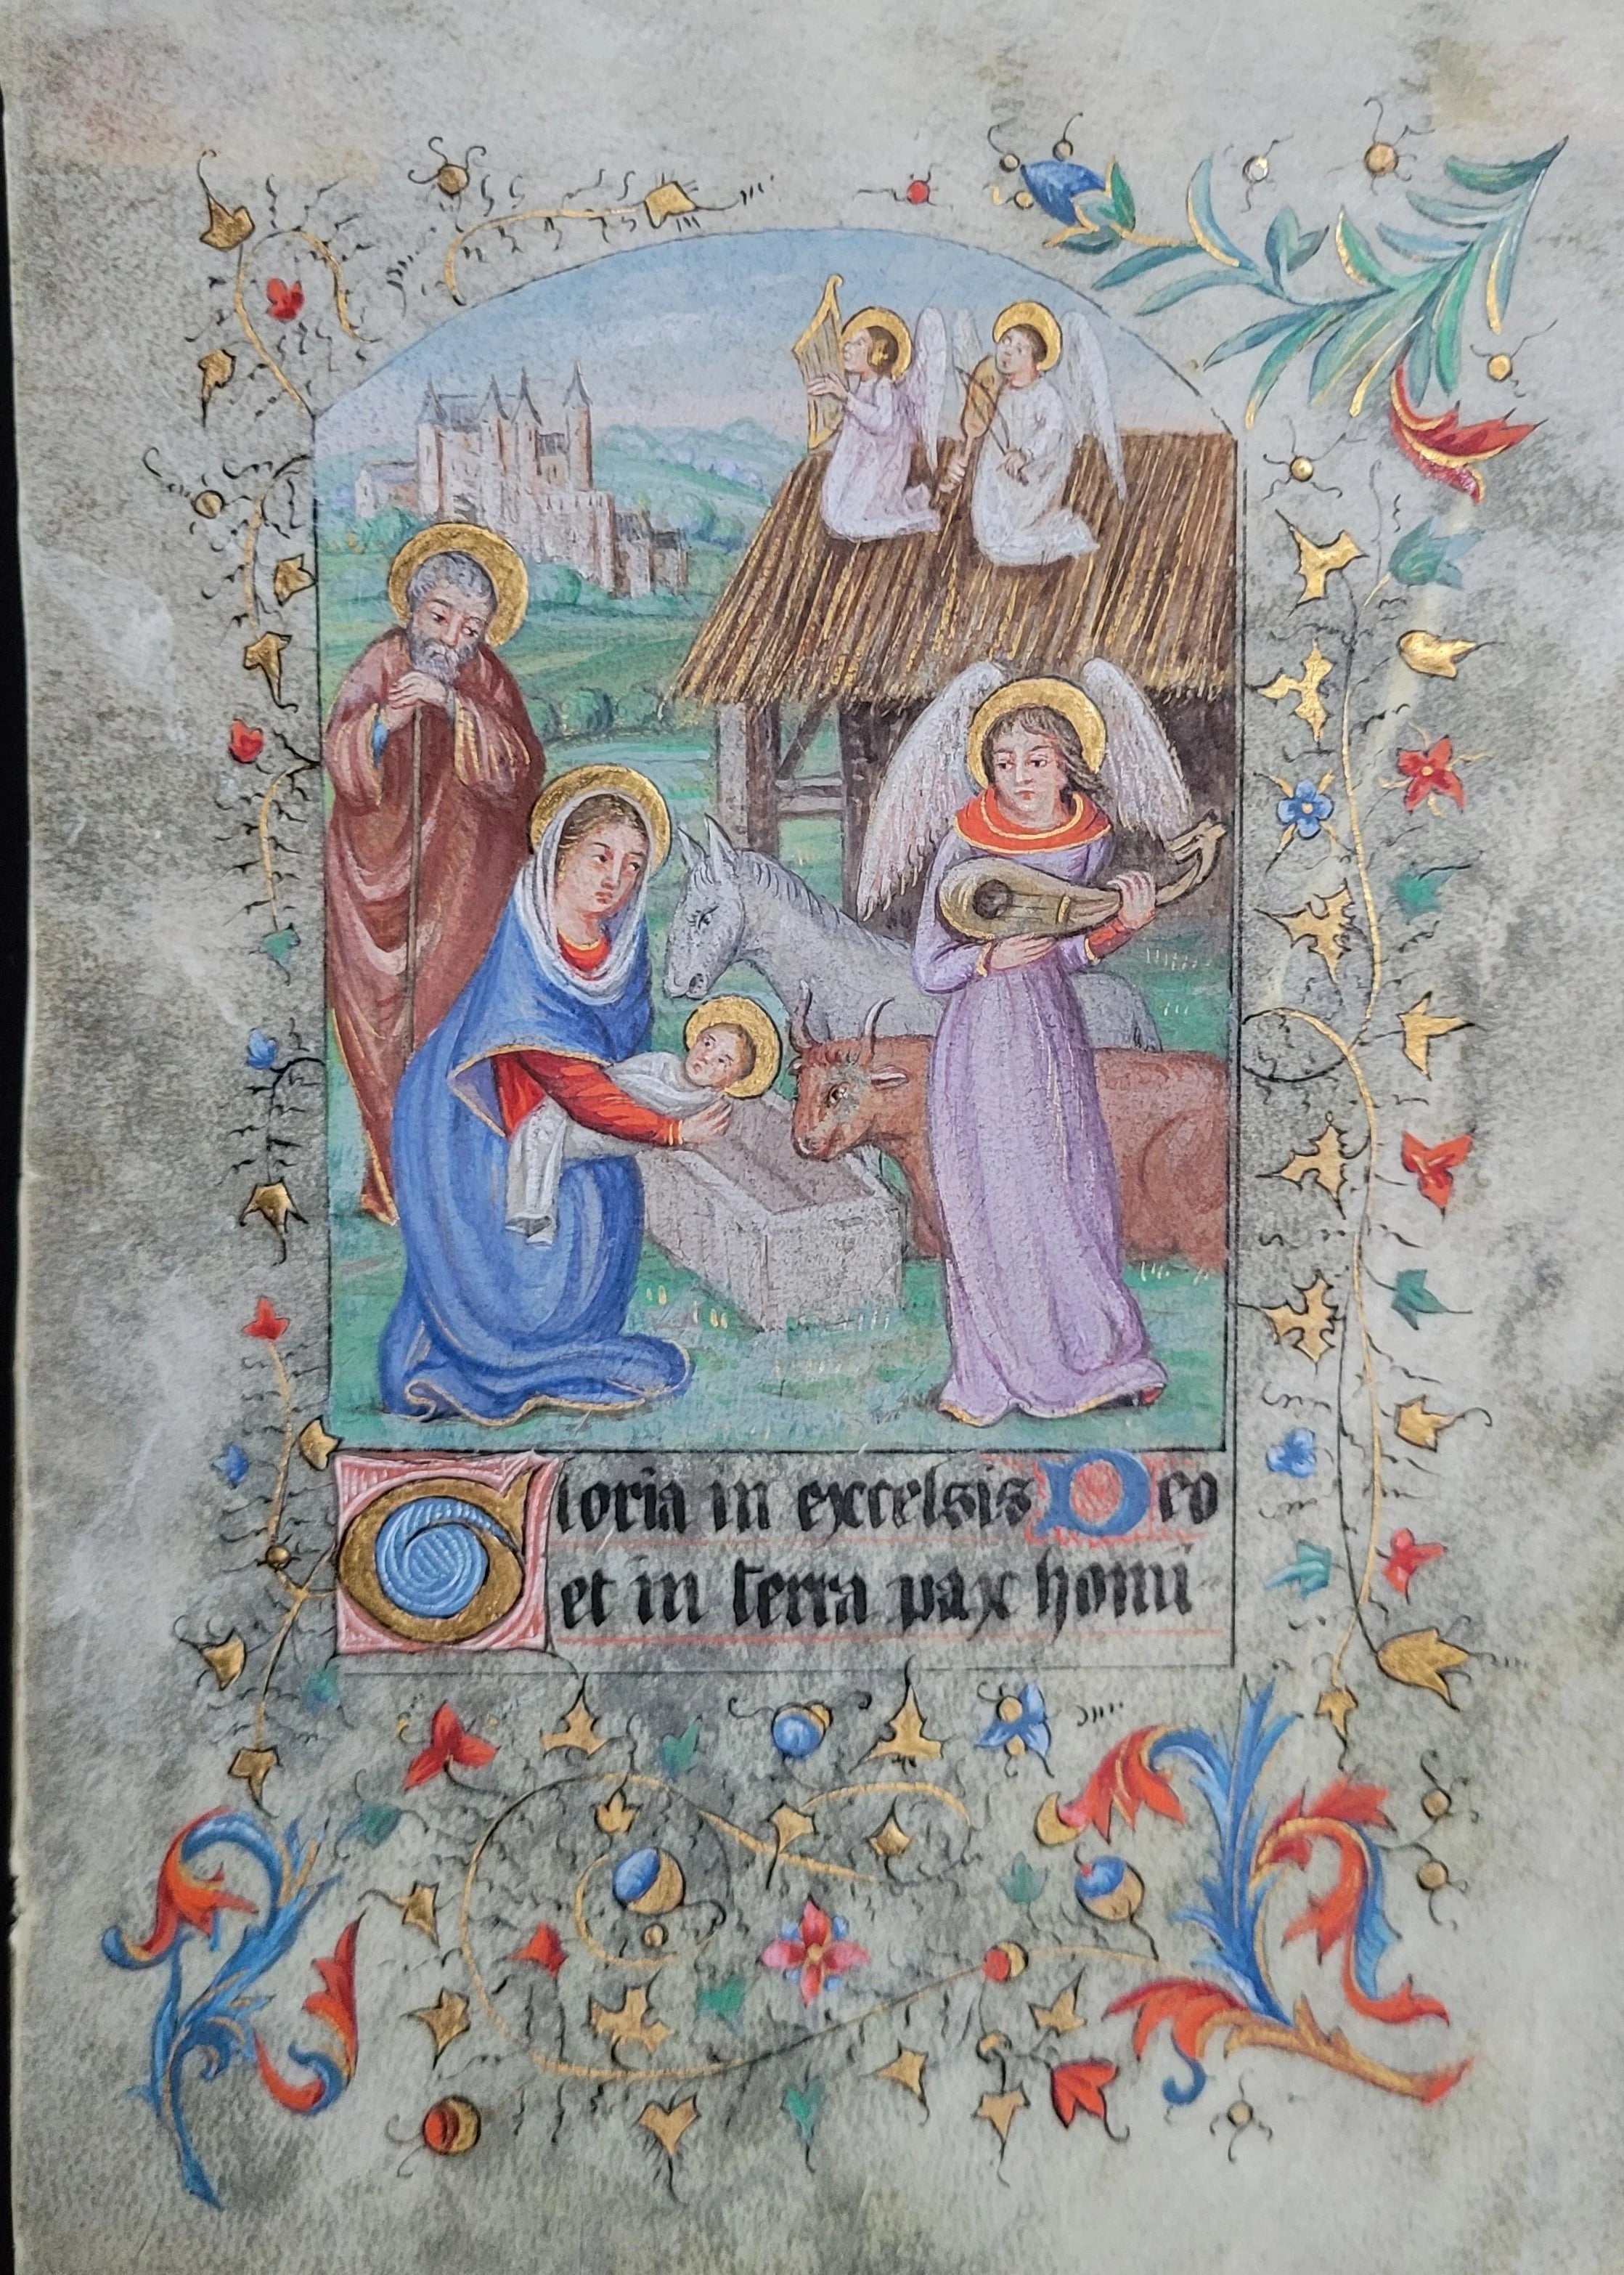 Gloria in excelsis Deo
et in terra pax homi-